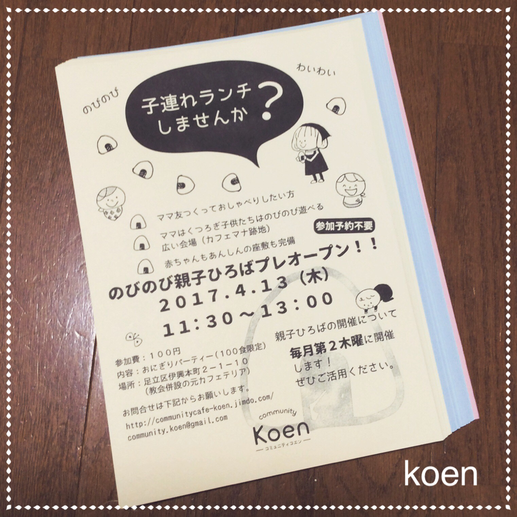 のびのび
わいわい
子連れランチ
しませんか?
ママ友つくっておしゃべりしたい方
ママはくつろぎ子供たちはのびのび遊べる
広い会場（カフェマナ跡地）
参加予約不要
赤ちゃんもあんしんの座敷も完備
のびのび親子ひろばプレオープン！！
２０１７．４．１３（木）
１１：３０～１３：００
参加費：１００円
内容：おにぎりパーティー（１００食限定）
場所：足立区伊興本町２－１－１０
（教会併設の元カフェテリア）
親子ひろばの開催について
毎月第２木曜に開催
します！
ぜひご活用ください。
お問合せは下記からお願いします。
http://communitycafe-koen.jimdo.com/
community.koen@gmail.com
community
Koen
コミュニティコエン
koen